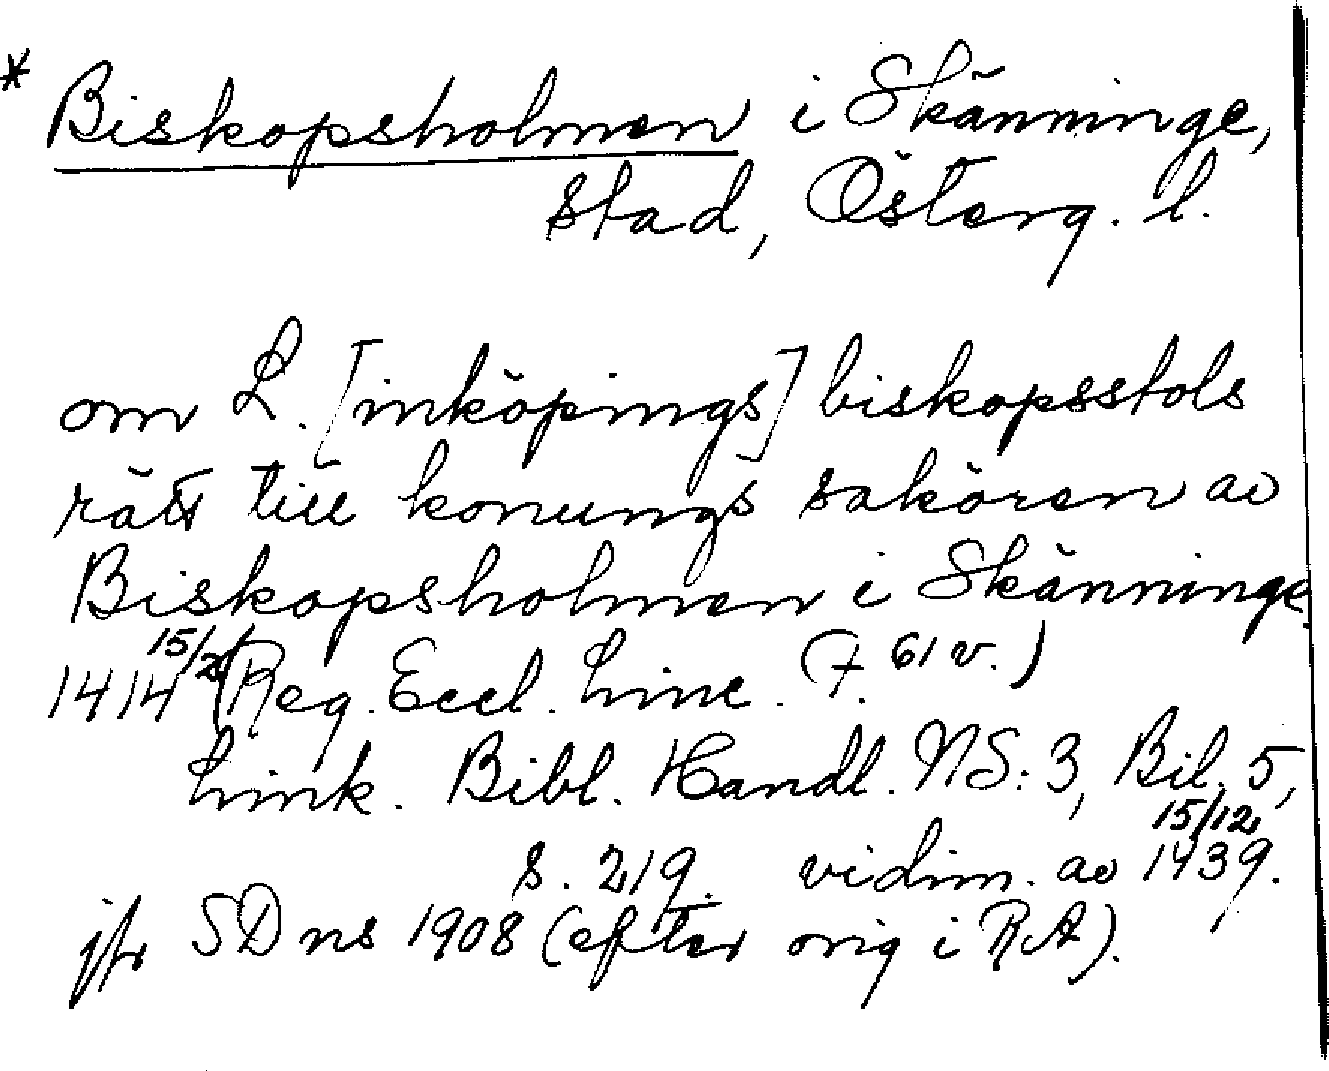 * Biskopsholmen i Skänninge,
stad, Österg. l.
om L. [inköpings] biskopsstols
rätt till konungs saköran av
Biskopsholmen i Skänninge.
1414 15/2 (Reg. Eccl. Linc. (f. 61 v.)
Link. Bibl. Handl. NS: 3, Bil. 5,
s. 219. vidim. av 15/12 1439.
jfr SD ns 1908 (efter orig i RA).